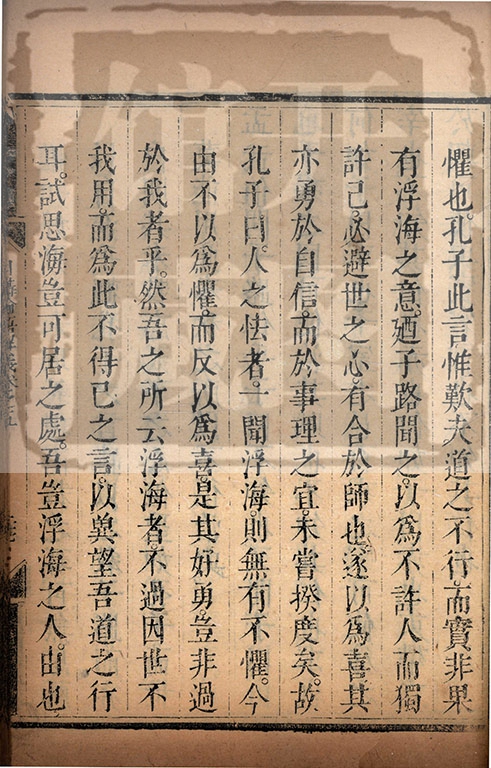 懼也。孔子此言惟歎夫道之不行。而實非果
有浮海之意。廼子路聞之。以爲不許人而獨
許己。必避世之心。有合於師也。遂以爲喜。其
亦勇於自信。而於事理之宜。未嘗揆度矣。故
孔子曰。人之怯者。一聞浮海。則無有不懼。今
由不以爲懼。而反以爲喜。是其好勇。豈非過
於我者乎。然吾之所云浮海者。不過因世不
我用。而爲此不得已之言。以冀望吾道之行
耳。試思海豈可居之處。吾豈浮海之人。由也